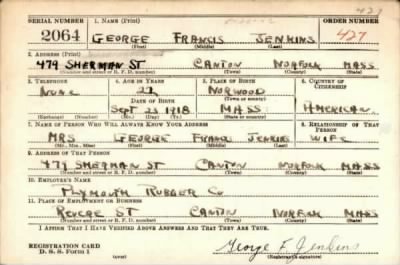 427
SERIAL NUMBER 1. NAME (Print) ORDER NUMBER
2064 GEORGE FRANCIS JENKINS 427
(First) (Middle) (Last)
2. ADDRESS (Print)
479 SHERMAN ST CANTON NORFOLK MASS
(Number and street or R. F. D. number) (Town) (County) (State)
3. TELEPHONE 4. AGE IN YEARS 5. PLACE OF BIRTH 6. COUNTRY OF CITIZENSHIP
NONE 22 NORWOOD
DATE OF BIRTH (Town or county)
SEPT 23 1918 MASS AMERICAN
(Mo.) (Day) (Yr.) (State or country)
7. NAME OF PERSON WHO WILL ALWAYS KNOW YOUR ADDRESS 8. RELATIONSHIP OF THAT PERSON
MRS GEORGE JENKINS WIFE
(Mr., Mrs., Miss) (First) (Middle) (Last)
9. ADDRESS OF THAT PERSON
479 SHERMAN ST CANTON NORFOLK MASS
(Number and street or R. F. D. number) (Town) (County) (State)
10. EMPLOYER'S NAME
PLYMOUTH RUBBER Co
11. PLACE OF EMPLOYMENT OR BUSINESS
REVERE ST CANTON NORFOLK MASS
(Number and street or R. F. D. number) (Town) (County) (State)
I AFFIRM THAT I HAVE VERIFIED ABOVE ANSWERS AND THAT THEY ARE TRUE.
REGISTRATION CARD
D. S. S. Form 1 George F. Jenkins
(Registrant's signature)